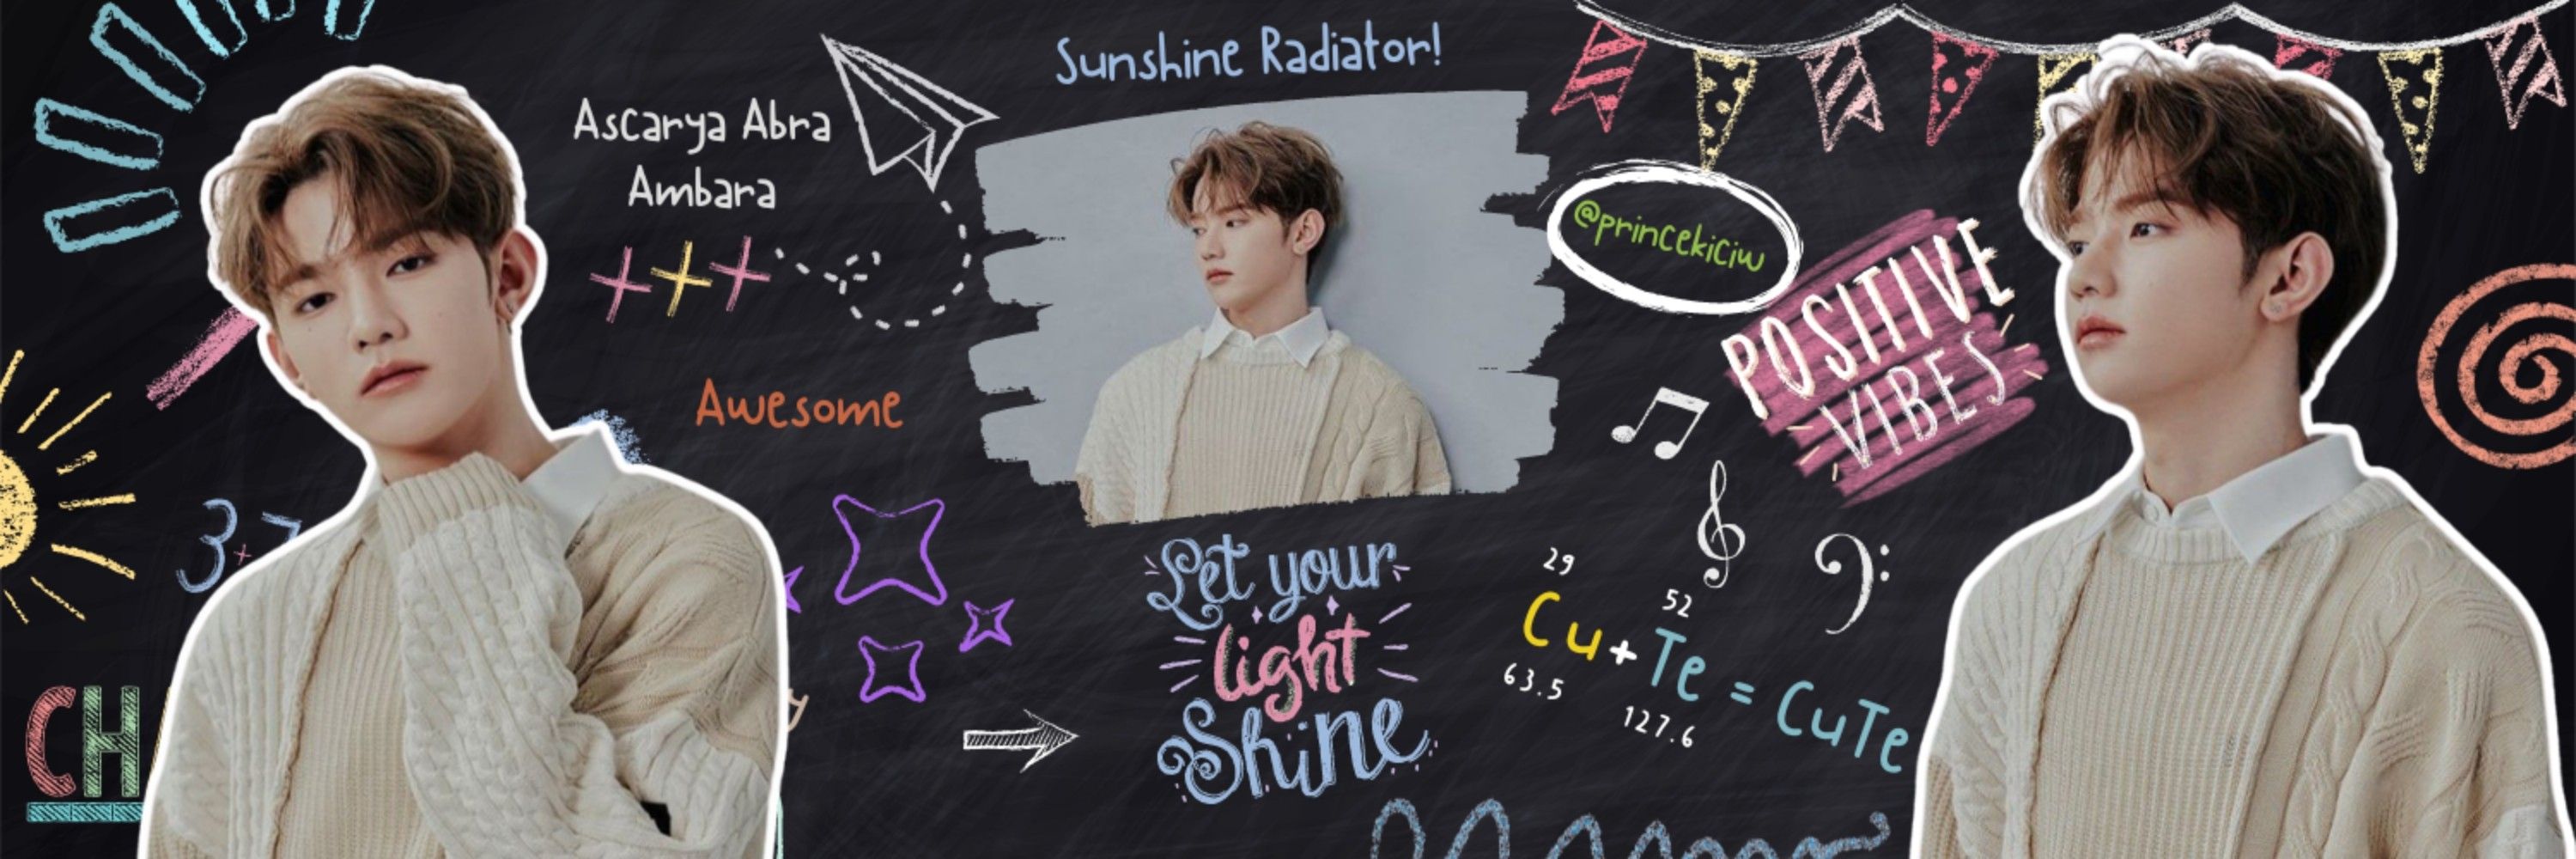 Sunshine Radiator!
Ascarya Abra
Ambara
@princekiciw
POSITIVE
VIBES
Awesome
3+7
Let your
light
Shine
29
Cu + Te = CuTe
52
63.5
127.6
CH